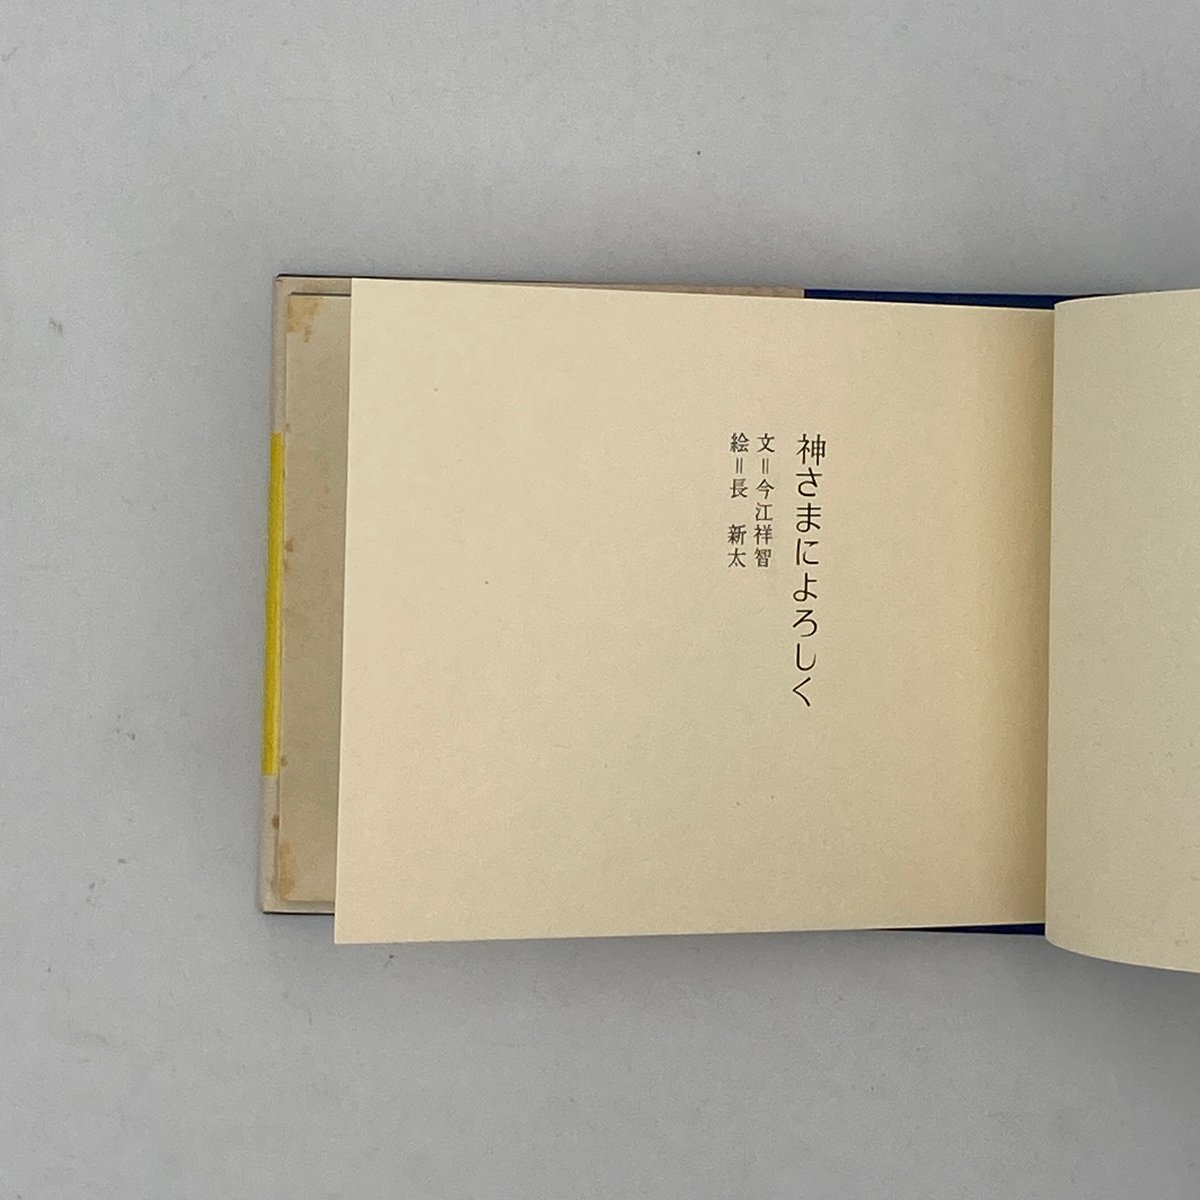 神さまによろしく
文=今江祥智
絵=長　新太